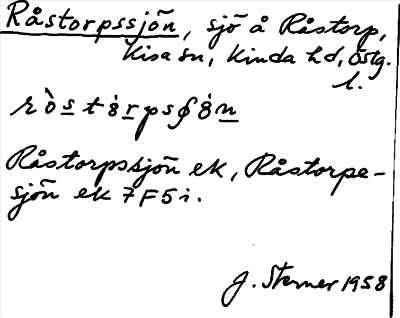 Råstorpssjön, sjö å Råstorp,
Kisa sn, Kinda hd, Östg.
l.
Råstorpssjön ek, Råstorpe-
sjön ek 7F5i.
J. Sterner 1958